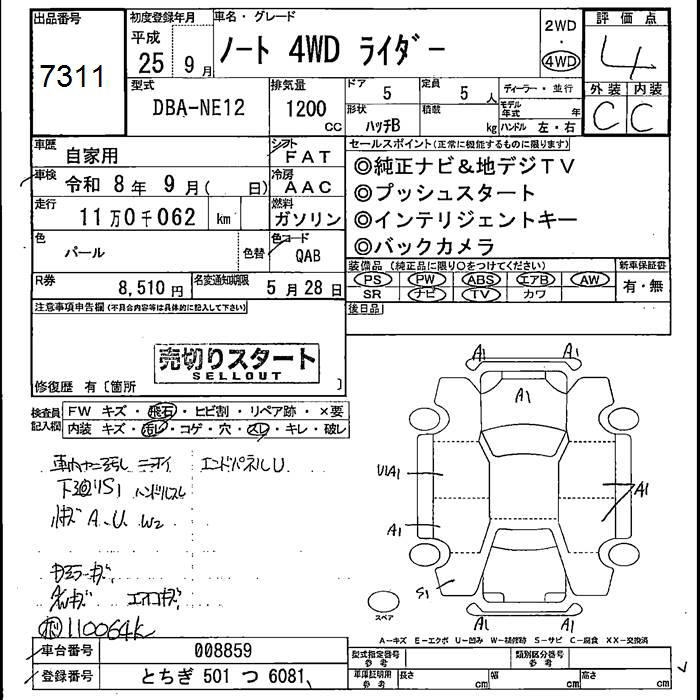 出品番号
7311
初度登録年月
平成
25 9月
車名・グレード
ノート 4WD ライダー
2WD
・
4WD
評価点
4
型式
DBA-NE12
排気量
1200
CC
ドア
5
定員
5 人
形状
ハッチB
積載
kg
ディーラー・並行
モデル年式 年
ハンドル 左・右
外装 内装
C C
車歴
自家用
シフト
FAT
車検
令和 8年 9月( 日)
冷房
AAC
走行
11万0千062 km
燃料
ガソリン
色
パール
色替
色コード
QAB
R券
8,510円
名変通知期限
5月28日
セールスポイント(正常に機能するものに限ります)
◎純正ナビ&地デジTV
◎プッシュスタート
◎インテリジェントキー
◎バックカメラ
装備品(純正品に限り○をつけてください)
PS PW ABS エアB AW
SR ナビ TV カワ
新車保証書
有・無
後日品
注意事項申告欄(不具合内容等は具体的に記入して下さい)
売切りスタート
SELLOUT
修復歴 有〔箇所 〕
検査員記入欄
FW キズ・飛石・ヒビ割・リペア跡・×要
内装 キズ・汚レ・コゲ・穴・スレ・キレ・破レ
エンドパネルU
下廻りS1 ハンドルスレ
A.U W2
110064k
A1 A1
A1
U1A1
A1
A1
S1
A1 A1
スペア
A-キズ E-エクボ U-凹み W-補修跡 S-サビ C-腐食 XX-交換済
車台番号
008859
登録番号
とちぎ 501 つ 6081
型式指定番号
参考
類別区分番号
参考
車庫証明用
参考
長さ cm
幅 cm
高さ cm